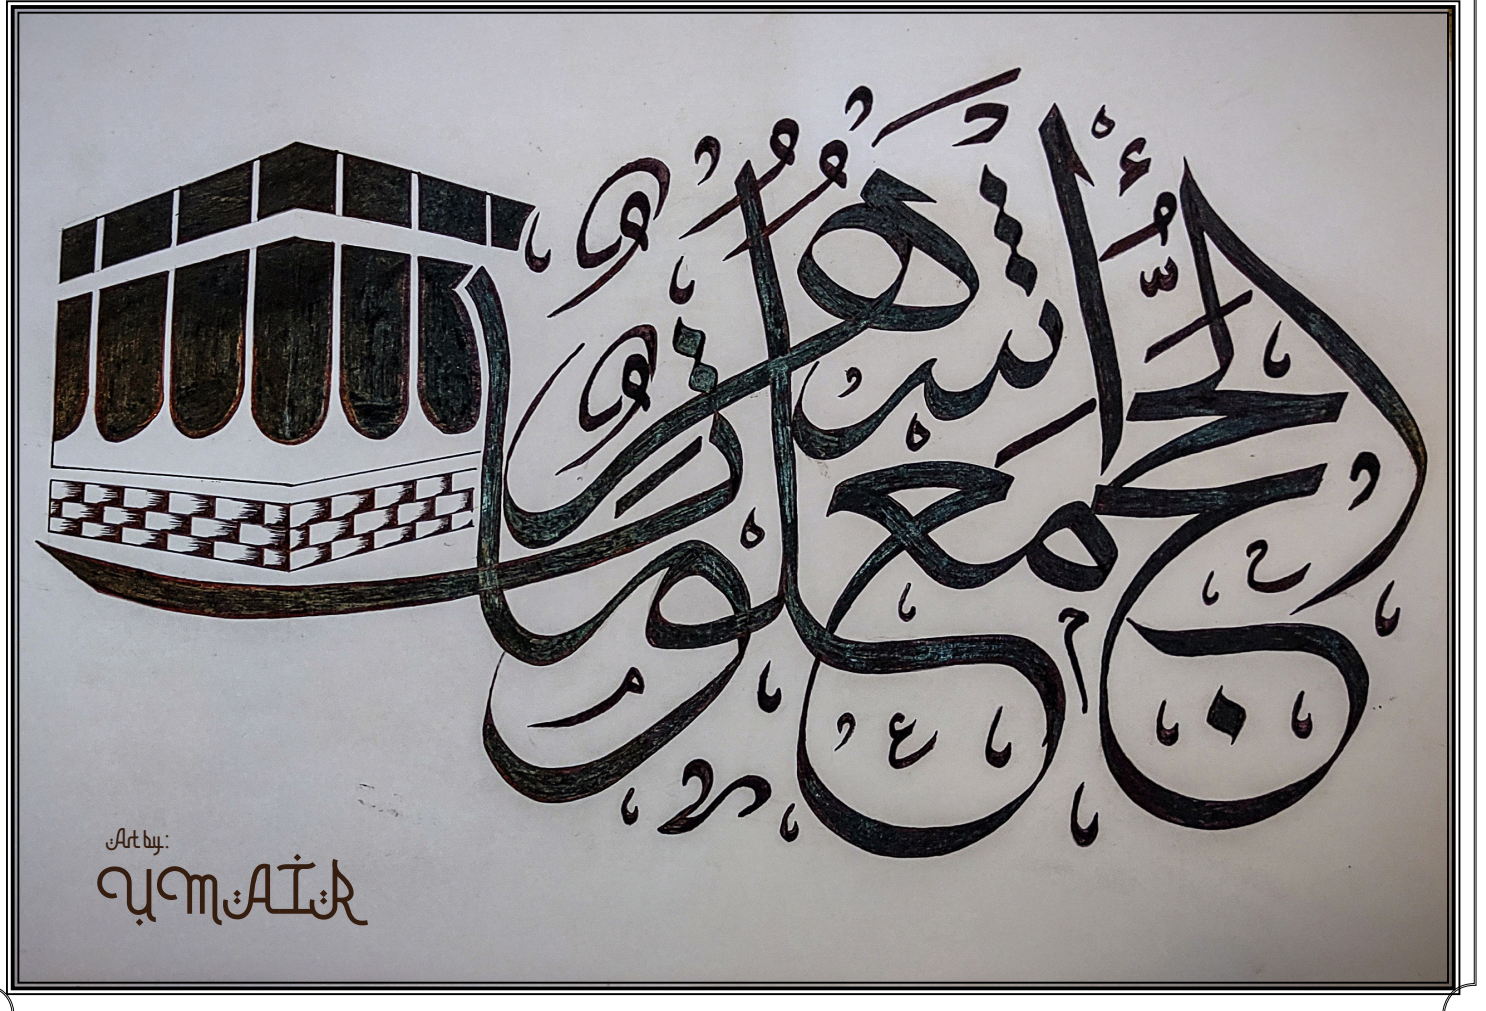 الْحَجُّ أَشْهُرٌ مَعْلُومَاتٌ
Art by:
UMAIR